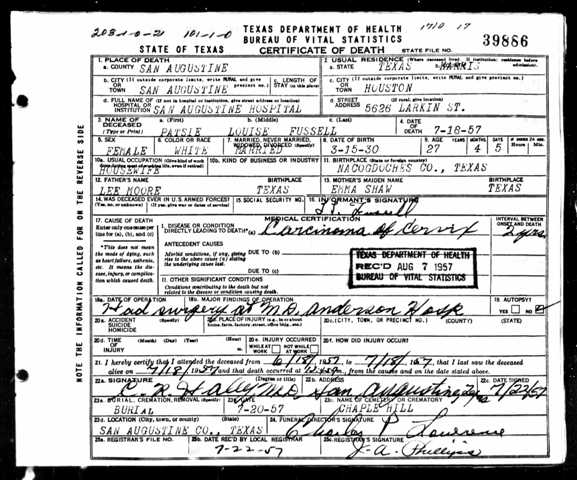 203-1-0-21 101-1-0 TEXAS DEPARTMENT OF HEALTH 1710 17
BUREAU OF VITAL STATISTICS
STATE OF TEXAS CERTIFICATE OF DEATH STATE FILE NO. 39886
1. PLACE OF DEATH
a. COUNTY SAN AUGUSTINE
2. USUAL RESIDENCE (Where deceased lived. If institution: residence before admission)
a. STATE TEXAS b. COUNTY HARRIS
b. CITY (If outside corporate limits, write RURAL and give precinct no.) OR TOWN SAN AUGUSTINE
c. LENGTH OF STAY (in this place)
c. CITY (If outside corporate limits, write RURAL and give precinct no.) OR TOWN HOUSTON
d. FULL NAME OF HOSPITAL OR INSTITUTION (If not in hospital or institution, give street address or location) SAN AUGUSTINE HOSPITAL
d. STREET ADDRESS (If rural, give location) 5626 LARKIN ST.
3. NAME OF DECEASED (Type or Print)
a. (First) PATSIE b. (Middle) LOUISE c. (Last) FUSSELL
4. DATE OF DEATH 7-18-57
5. SEX FEMALE
6. COLOR OR RACE WHITE
7. MARRIED, NEVER MARRIED, WIDOWED, DIVORCED (Specify) MARRIED
8. DATE OF BIRTH 3-15-30
9. AGE YEARS 27 MONTHS 4 DAYS 5 Hours Min.
10a. USUAL OCCUPATION (Give kind of work done during most of working life, even if retired) HOUSEWIFE
10b. KIND OF BUSINESS OR INDUSTRY
11. BIRTHPLACE (State or foreign country) NACOGDOCHES CO., TEXAS
12. FATHER'S NAME LEE MOORE BIRTHPLACE TEXAS
13. MOTHER'S MAIDEN NAME EMMA SHAW BIRTHPLACE TEXAS
14. WAS DECEASED EVER IN U.S. ARMED FORCES?
(Yes, no, or unknown) (If yes, give war or dates of service)
15. SOCIAL SECURITY NO.
16. INFORMANT'S SIGNATURE
Fussell
17. CAUSE OF DEATH
Enter only one cause per line for (a), (b), and (c)
MEDICAL CERTIFICATION
INTERVAL BETWEEN ONSET AND DEATH
I. DISEASE OR CONDITION DIRECTLY LEADING TO DEATH* (a) Carcinoma of Cervix 2 yrs
*This does not mean the mode of dying, such as heart failure, asthenia, etc. It means the disease, injury, or complication which caused death.
ANTECEDENT CAUSES
Morbid conditions, if any, giving rise to the above cause (a) stating the underlying cause last.
DUE TO (b)
DUE TO (c)
TEXAS DEPARTMENT OF HEALTH
REC'D AUG 7 1957
BUREAU OF VITAL STATISTICS
II. OTHER SIGNIFICANT CONDITIONS
Conditions contributing to the death but not related to the disease or condition causing death.
18a. DATE OF OPERATION 18b. MAJOR FINDINGS OF OPERATION
Had surgery at M.D. Anderson Hosp
19. AUTOPSY? YES NO
20a. ACCIDENT SUICIDE HOMICIDE (Specify)
20b. PLACE OF INJURY (e.g., in or about home, farm, factory, street, office bldg., etc.)
20c. (CITY, TOWN, OR PRECINCT NO.) (COUNTY) (STATE)
20d. TIME OF INJURY (Month) (Day) (Year) (Hour)
20e. INJURY OCCURRED WHILE AT WORK NOT WHILE AT WORK
20f. HOW DID INJURY OCCUR?
21. I hereby certify that I attended the deceased from 6/18/1957, to 7/18/1957, that I last saw the deceased
alive on 7/18/1957 and that death occurred at m., from the causes and on the date stated above.
22a. SIGNATURE (Degree or title) C R Haley M.D.
22b. ADDRESS San Augustine, Texas
22c. DATE SIGNED 7/22/57
23a. BURIAL, CREMATION, REMOVAL (Specify) BURIAL
23b. DATE 7-20-57
23c. NAME OF CEMETERY OR CREMATORY CHAPLE HILL
23d. LOCATION (City, town, or county) (State) SAN AUGUSTINE CO., TEXAS
24. FUNERAL DIRECTOR'S SIGNATURE Charley P. Lawrence
25a. REGISTRAR'S FILE NO.
25b. DATE REC'D BY LOCAL REGISTRAR 7-22-57
25c. REGISTRAR'S SIGNATURE J. A. Phillips
NOTE THE INFORMATION CALLED FOR ON THE REVERSE SIDE